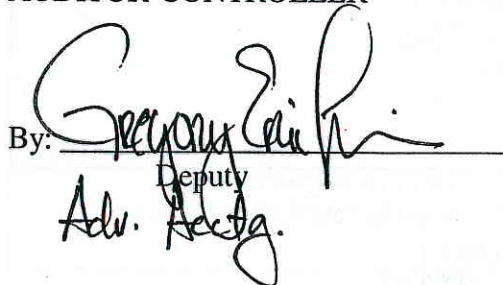 AUDITOR-CONTROLLER
By: Gregory Eric
Deputy
Adv. Acctg.